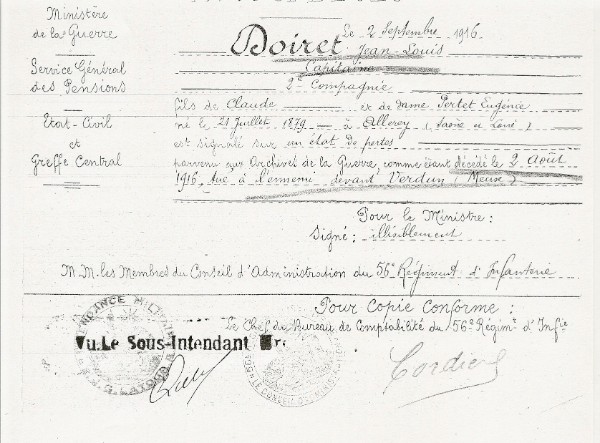 Ministère
de la Guerre
Service Général
des Pensions
Etat-Civil
et
Greffe Central
Le 2 Septembre 1916.
Doiret Jean-Louis
Capitaine
2e Compagnie
fils de Claude et de dame Pertet Eugénie
né le 21 Juillet 1879 à Allerey (Saône et Loire)
est signalé sur un état de pertes
parvenu aux Archives de la Guerre comme étant décédé le 2 Août
1916, tué à l'ennemi devant Verdun (Meuse)
Pour le Ministre:
Signé: illisiblement
M.M. les Membres du Conseil d'Administration du 56e Régiment d'Infanterie
Pour Copie Conforme:
Le Chef du Bureau de Comptabilité du 56e Régimt d'Infie
Vu. Le Sous-Intendant
Cordier